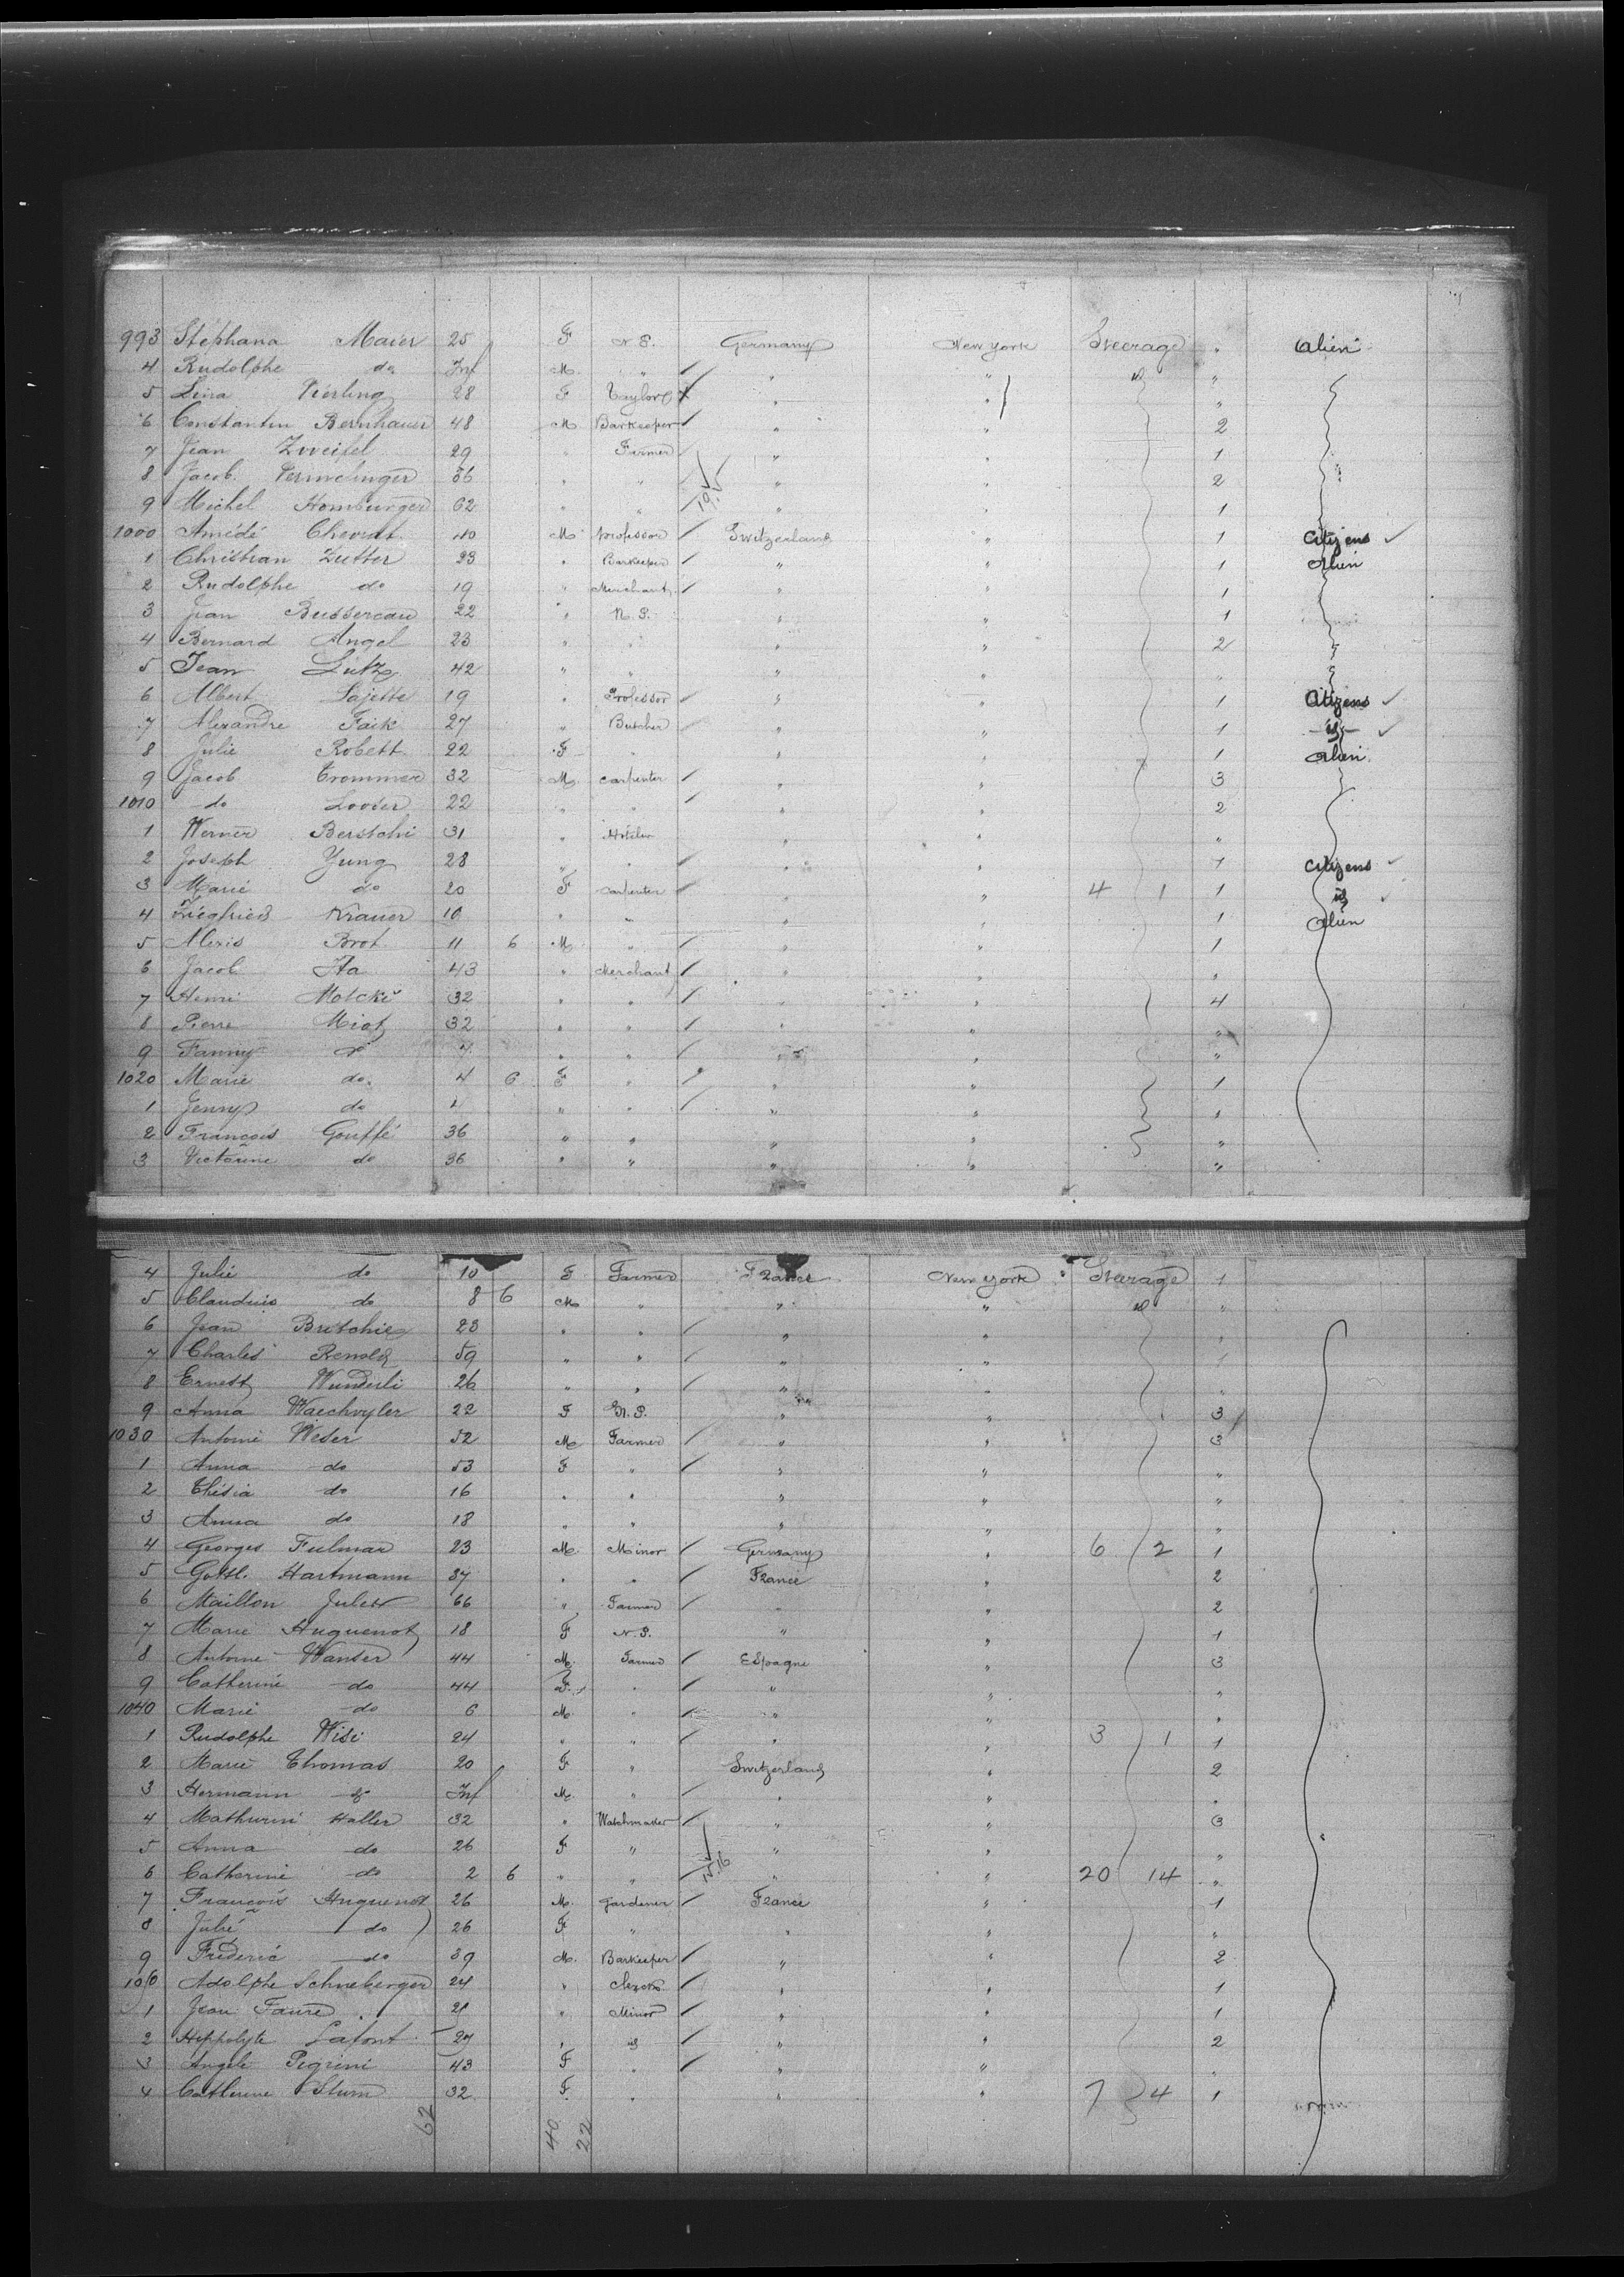 993 Stéphana Maier 25 F N P. Germany New York Steerage " Alien
4 Rudolphe do Inf M. " " " id "
5 Lina Vierling 28 F Taylor " " "
6 Constantin Bernhauer 48 M Barkeeper " " 2
7 Jean Zweifel 29 " Farmer " " 1
8 Jacob 36 " " " " 2
9 Michel Homburger 62 " " 19 " " 1
1000 Amédé Chevrat 40 M professor Switzerland " 1 Citizens
1 Christian Zutter 23 " Barkeeper " " 1 Alien
2 Rudolphe do 19 " Merchant " " 1
3 Jean Bussereau 22 " N. P. " " 1
4 Bernard Angel 23 " " " " 2
5 Jean Lutz 42 " " " " "
6 Albert Lajette 19 " Professor " " 1 Citizens
7 Alexandre Faik 27 " Butcher " " 1 id
8 Julie Robett 22 F " " " 1 Alien
9 Jacob Trommer 32 M carpenter " " 3
1010 do Looser 22 " " " " 2
1 Werner Berstchi 31 " " " "
2 Joseph Yung 28 " " " " 1 Citizens
3 Marie do 20 F carpenter " " 4 1 1 id
4 Ziegfried Krauer 10 " " " " 1 Alien
5 Alexis Brot 11 6 M " " " 1
6 Jacob Ita 43 " Merchant " " "
7 Henri 32 " " " " 4
8 Pierre Miot 32 " " " " "
9 Fanny do 7 " " " " "
1020 Marie do. 4 6 F " " " 1
1 Jenny do " " " " "
2 François Gouffé 36 " " " " "
3 Victorine do 36 " " " " "
4 Julie do 10 F Farmer France New York Steerage 1
5 Claudius do 8 6 M " " " id "
6 Jean Britchie 23 " " " " "
7 Charles Renold 59 " " " "
8 Ernest Wunderli 26 " " " " "
9 Anna Waechvyler 22 F N. P. " " 3
1030 Antoine Weder 52 M Farmer " " 3
1 Anna do 53 F " " " "
2 Thésia do 16 " " " " "
3 Anna do 18 " " " " "
4 Georges Fulmar 23 M. Minor Germany " 6 2 1
5 Gottl. Hartmann 37 " " France " 2
6 Maillon Jules 66 " Farmer " " 2
7 Marie Huguenot 18 F N. P. " " 1
8 Antoine Wanser 44 M. Farmer Espagne " 3
9 Catherine do 44 F. " " " "
1040 Marie do 6 M. " " " "
1 Rudolphe Wisi 24 " " " " 3 1 1
2 Marie Thomas 20 F " Switzerland " 2
3 Hermann do Inf M. " " " "
4 Mathurini Haller 32 " Watchmaker " " 3
5 Anna do 26 F " " " "
6 Catherine do 2 6 " " " " 20 14 "
7 François Huguenot 26 M. Gardener France " 1
8 Julie do 26 F " " " "
9 Fréderic do 39 M. Barkeeper " " 2
Adolphe Schneberger 24 " " " 1
1 Jean Faure 21 " Minor " " 1
2 Hippolyte Lafont 27 " id " " 2
3 Angele Pegrini 43 F " " " "
4 Catherine Sturm 32 F. " " " 7 4 1
62 40 22